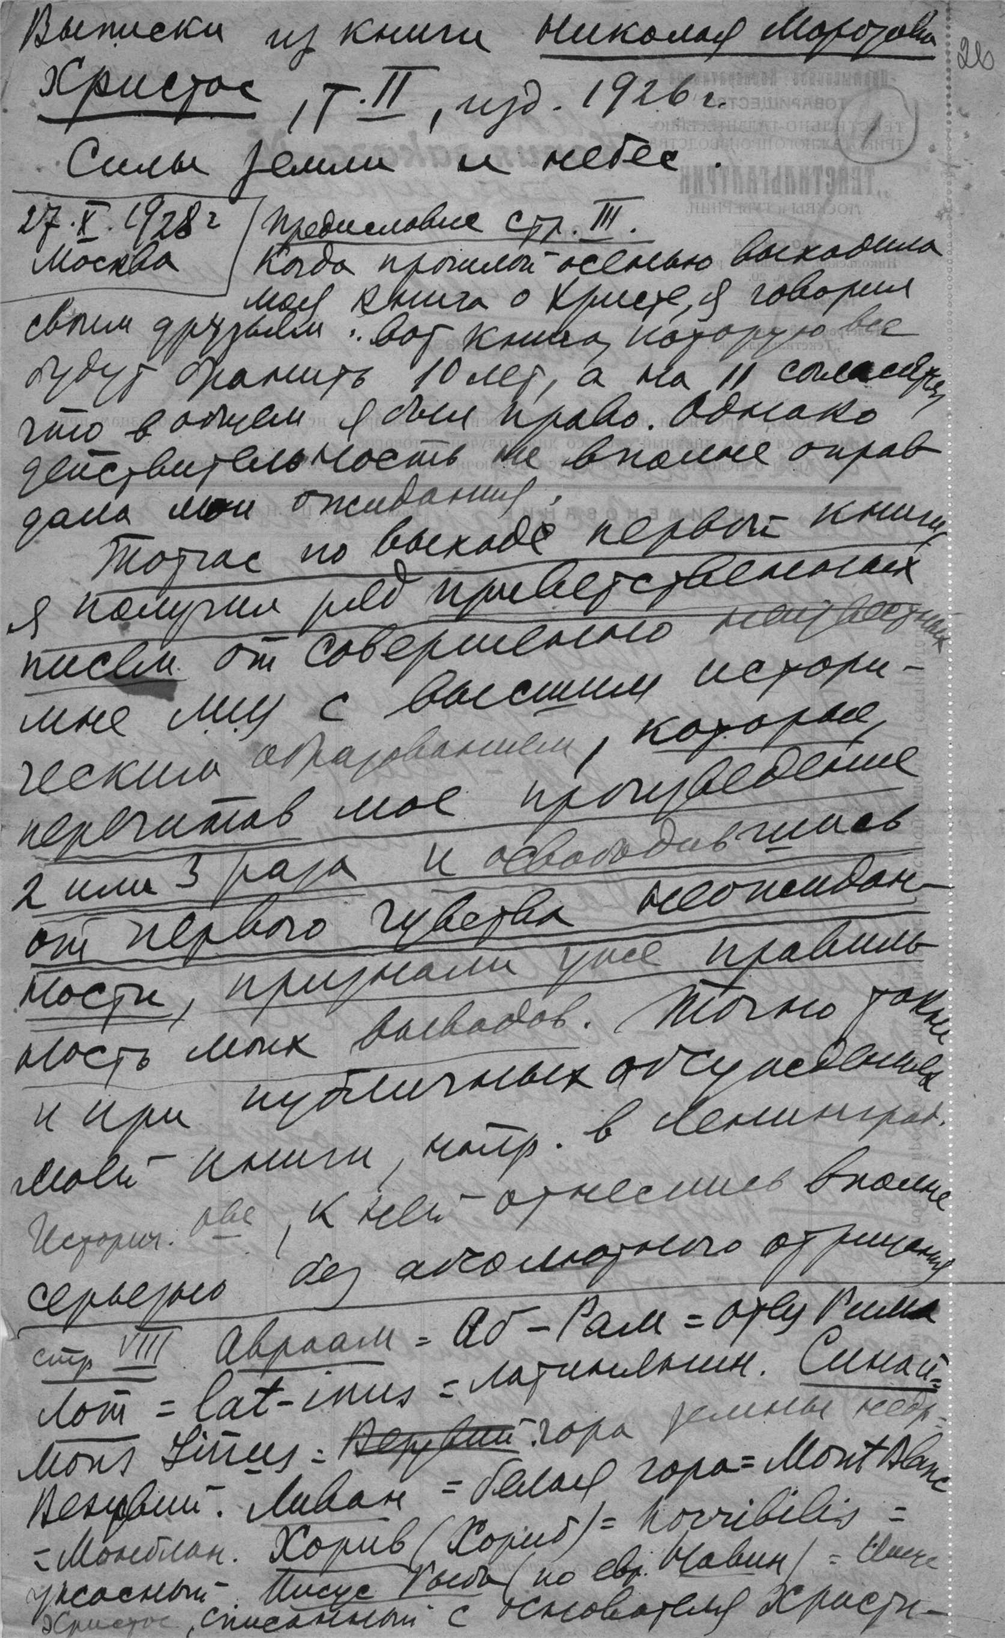 28
Выписки из книги Николая Морозова
Христос, т. II, изд. 1926 г.
1
Силы земли и небес.
27.X.1928 г
Москва
Предисловие стр. III.
Когда прошлой осенью выходила
моя книга о Христе, я говорил
своим друзьям: вот книга, которую все
будут бранить 10 лет, а на 11 согласятся,
что в общем я был право. Однако
действительность не вполне оправ
дала мои ожидания.
Тотчас по выходе первой книги
я получил ряд приветственных
писем от совершенно неизвестных
мне лиц с высшим истори-
ческим образованием, которые,
перечитав мое произведение
2 или 3 раза и освободившись
от первого чувства неожидан-
ности, признали уже правиль
ность моих выводов. Точно также
и при публичных обсуждениях
моей книги, напр. в Ленинград.
Историч. о-ве, к ней отнеслись вполне
серьезно без абсолютного отрицания
стр VIII. Авраам = Аб-Рам = отец Рима
Лот = Lat-inus = латинянин. Синай =
Mons Sinus = Везувий гора
Везувий. Ливан = белая гора = Mont Blanc
= Монблан. Хорив (Хориб) = horribilis =
ужасный. Иисус (по евр. Навин) =
Христос, списанный с основателя Христи-